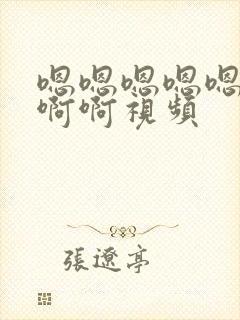 嗯嗯嗯嗯嗯
啊啊視頻
張遼亭